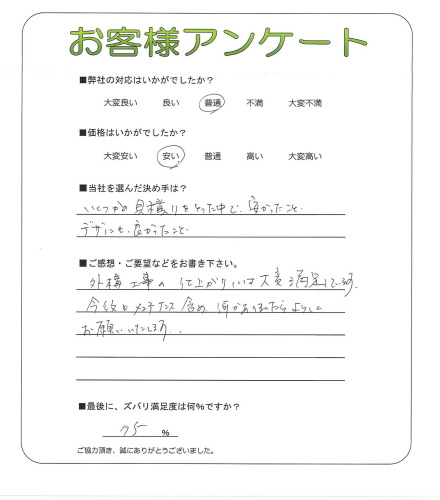 お客様アンケート
■弊社の対応はいかがでしたか？
大変良い 良い 普通 不満 大変不満
■価格はいかがでしたか？
大変安い 安い 普通 高い 大変高い
■当社を選んだ決め手は？
いくつかの見積りをとった中で、安かったこと
デザインも良かったこと
■ご感想・ご要望などをお書き下さい。
外構工事の仕上がりには大変満足しています。
今後もメンテナンス含め、何かありましたらよろしく
お願いいたします。
■最後に、ズバリ満足度は何％ですか？
75 ％
ご協力頂き、誠にありがとうございました。